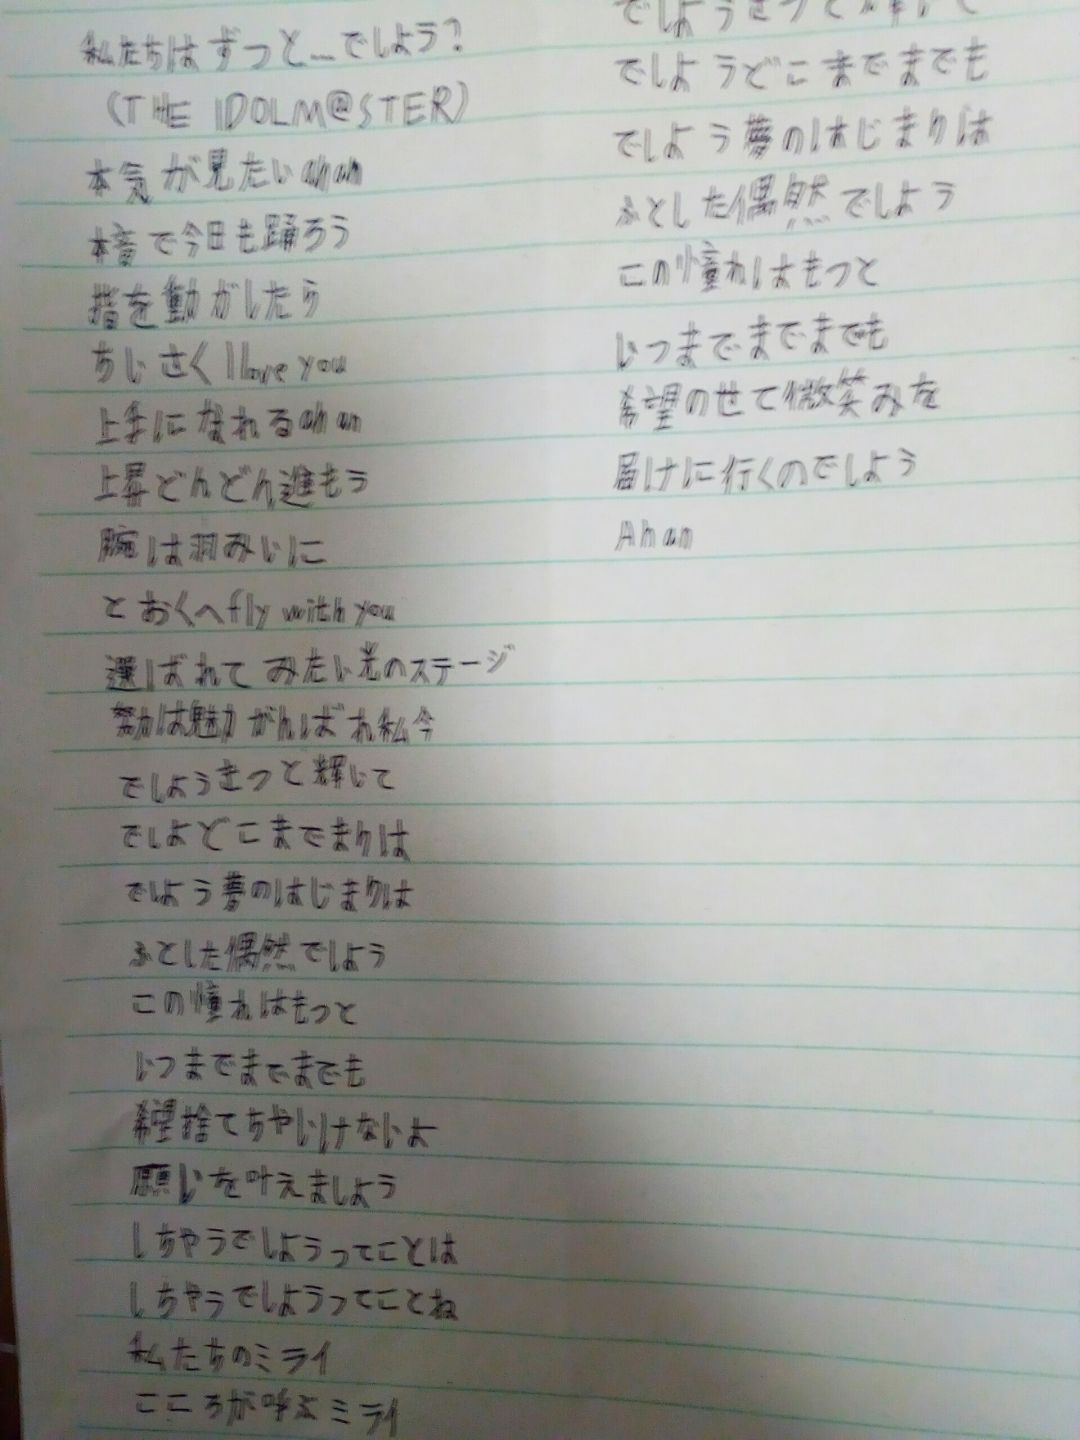 私たちはずっと…でしよう?
(THE IDOLM@STER)
本気が見たいahan
本音で今日も踊ろう
指を動かしたら
ちいさくI love you
上手になれるahan
上昇どんどん進もう
腕は羽みいに
とおくへfly with you
選ばれてみたい光のステージ
努力は魅力がんばれ私今
でしようきつと輝いて
でしよどこまでまりは
でしよう夢のはじまりは
ふとした偶然でしよう
この憧れはもつと
いつまでまでまでも
希望捨てちやいけないよ
願いを叶えましよう
しちやうでしようつてことは
しちやうでしようつてことね
私たちのミライ
こころが呼ぶミライ
でしようきつと輝いて
でしようどこまでまでも
でしよう夢のはじまりは
ふとした偶然でしよう
この憧れはもつと
いつまでまでまでも
希望のせて微笑みを
届けに行くのでしよう
Ahan